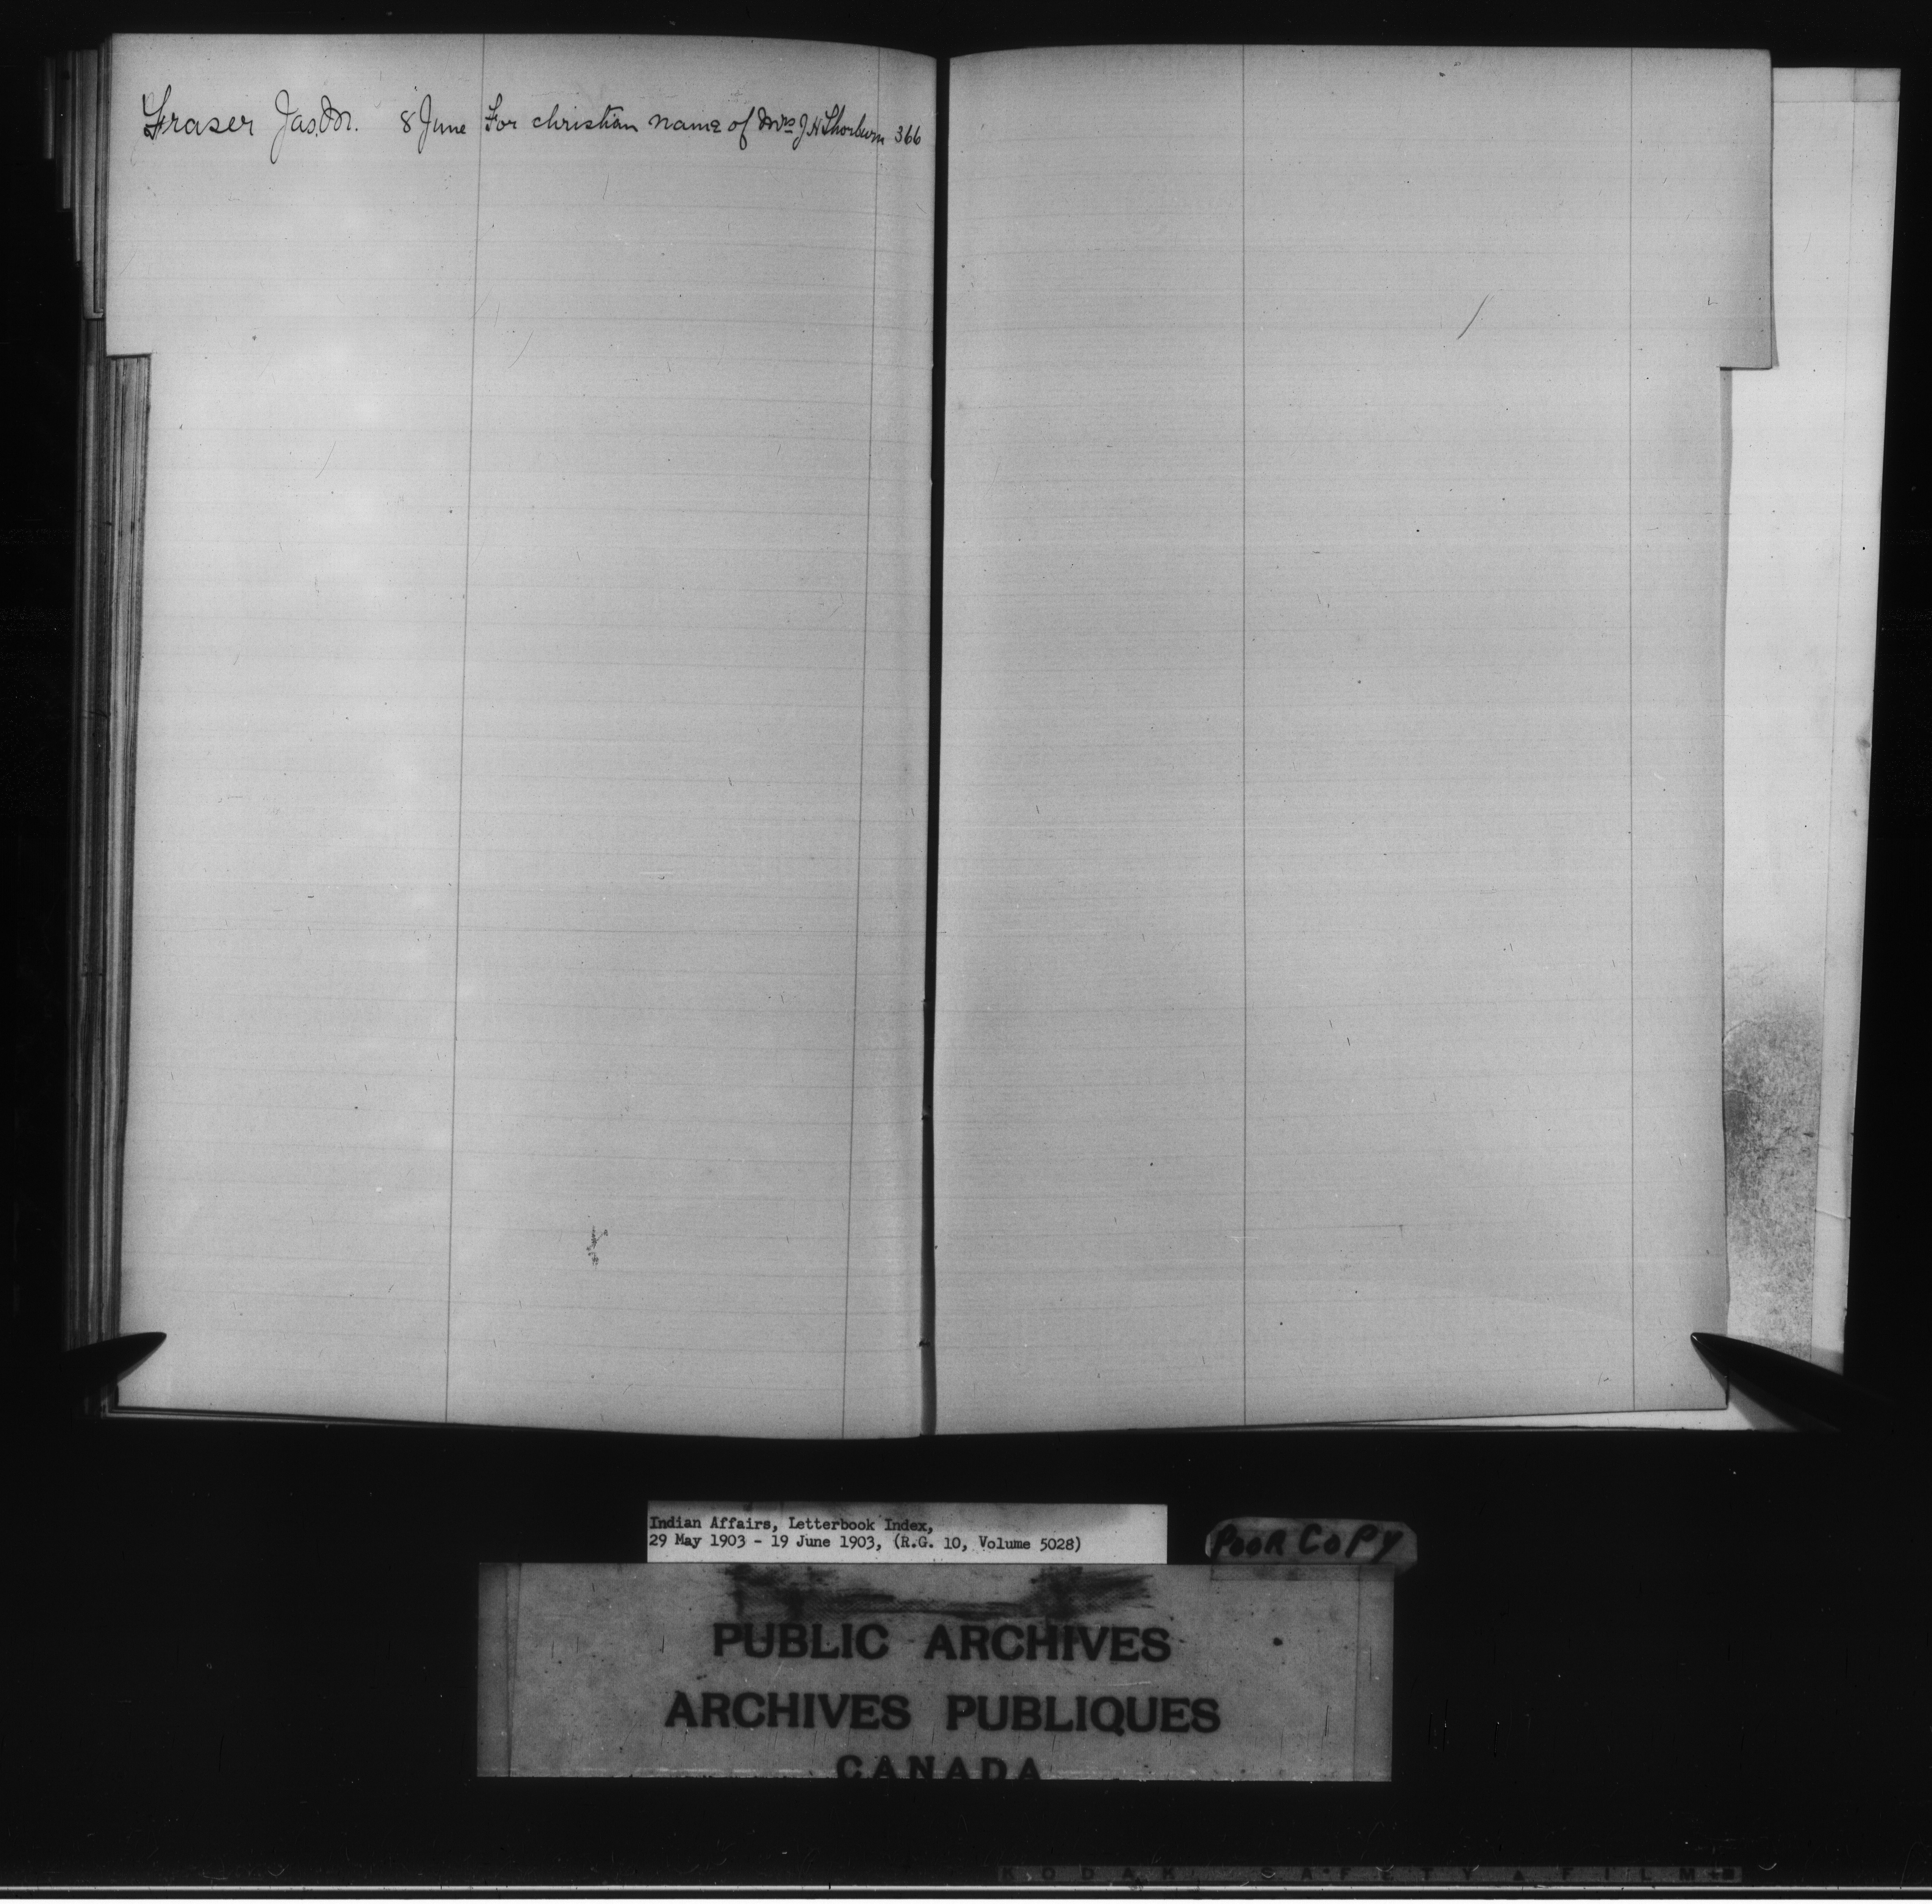 Fraser Jas. M. 8 June For christian name of Mrs J H Thorburn 366
Indian Affairs, Letterbook Index,
29 May 1903 - 19 June 1903, (R.G. 10, Volume 5028)
POOR COPY
PUBLIC ARCHIVES
ARCHIVES PUBLIQUES
CANADA
KODAK SAFETY FILM